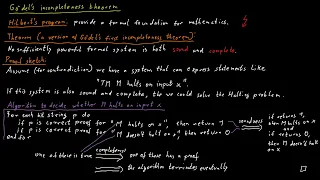 Gödel's incompleteness theorem
Hilbert's program: provide a formal foundation for mathematics.
Theorem (a version of Gödel's first incompleteness theorem):
No sufficiently powerful formal system is both sound and complete.
Proof sketch:
Assume (for contradiction) we have a system that can express statements like
"TM M halts on input x".
If this system is also sound and complete, then we could solve the Halting problem.
Algorithm to decide whether M halts on input x
For each bit string p do
if p is correct proof for "M halts on x", then return 1
if p is correct proof for "M doesn't halt on x", then return 0
end for
soundness
if returns 1, then M halts on x
and
if returns 0, then M doesn't halt on x
one of these is true
completeness
one of these has a proof
the algorithm terminates eventually